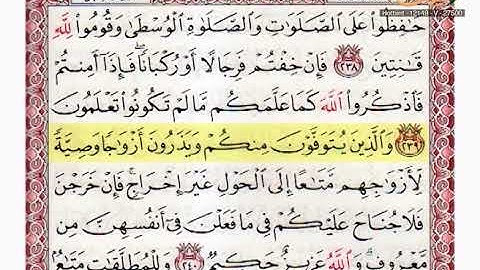 Hotbird - 12149 - V - 27500
حَـٰفِظُوا۟ عَلَى ٱلصَّلَوَٰتِ وَٱلصَّلَوٰةِ ٱلْوُسْطَىٰ وَقُومُوا۟ لِلَّهِ
قَـٰنِتِينَ ﴿٢٣٨﴾ فَإِنْ خِفْتُمْ فَرِجَالًا أَوْ رُكْبَانًا ۖ فَإِذَآ أَمِنتُمْ
فَٱذْكُرُوا۟ ٱللَّهَ كَمَا عَلَّمَكُم مَّا لَمْ تَكُونُوا۟ تَعْلَمُونَ
﴿٢٣٩﴾ وَٱلَّذِينَ يُتَوَفَّوْنَ مِنكُمْ وَيَذَرُونَ أَزْوَٰجًا وَصِيَّةً
لِّأَزْوَٰجِهِم مَّتَـٰعًا إِلَى ٱلْحَوْلِ غَيْرَ إِخْرَاجٍ ۚ فَإِنْ خَرَجْنَ
فَلَا جُنَاحَ عَلَيْكُمْ فِى مَا فَعَلْنَ فِىٓ أَنفُسِهِنَّ مِن
مَّعْرُوفٍ ۗ وَٱللَّهُ عَزِيزٌ حَكِيمٌ ﴿٢٤٠﴾ وَلِلْمُطَلَّقَـٰتِ مَتَـٰعٌۢ